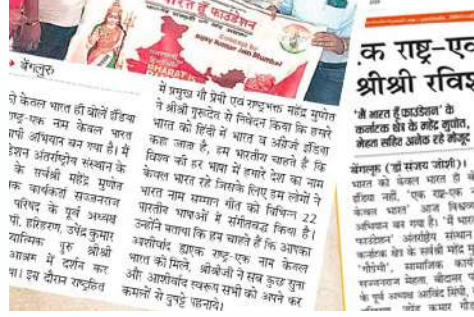 भारत हूँ फाउंडेशन
Vijay Kumar Jain Mumbai
बेंगलुरु
केवल भारत ही बोलें इंडिया
राष्ट्र-एक नाम केवल भारत
अभियान बन गया है। में
अंतर्राष्ट्रीय संस्थान के
के सर्वश्री महेंद्र मुणोत
कार्यकर्ता सज्जनराज
परिषद के पूर्व अध्यक्ष
पी. हरिहरण, उपेंद्र कुमार
गुरु श्रीश्री
आश्रम में दर्शन कर
इस दौरान राष्ट्रहित
में प्रमुख गौ प्रेमी एवं राष्ट्रभक्त महेंद्र मुणोत
ने श्रीश्री गुरूदेव से निवेदन किया कि हमारे
भारत को हिंदी में भारत व अंग्रेजी इंडिया
कहा जाता है, हम भारतीय चाहते हैं कि
विश्व की हर भाषा में हमारे देश का नाम
केवल भारत रहे जिसके लिए हम लोगों ने
भारत नाम सम्मान गीत को विभिन्न 22
भारतीय भाषाओं में संगीतबद्ध किया है।
उन्होंने बताया कि हम चाहते हैं कि आपका
आशीर्वाद एक राष्ट्र-एक नाम केवल
भारत को मिले, श्रीश्रीजी ने सब कुछ सुना
और आशीर्वाद स्वरूप सभी को अपने कर
कमलों से दुपट्टे पहनाये।
क राष्ट्र-एक
श्रीश्री रविश
'मैं भारत हूँ फाउंडेशन' के
कर्नाटक क्षेत्र के महेंद्र मुणोत,
मेहता सहित अनेक रहे मौजूद
बेंगलुरु (डॉ संजय जोशी)।
भारत को केवल भारत ही
इंडिया नहीं, 'एक राष्ट्र-एक
केवल भारत' आज
अभियान बन गया है। 'मैं भारत
फाउंडेशन' अंतर्राष्ट्रीय संस्थान
कर्नाटक क्षेत्र के सर्वश्री महेंद्र
'गौप्रेमी', सामाजिक
सज्जनराज मेहता,
के पूर्व अध्यक्ष अरविंद सिंघी,